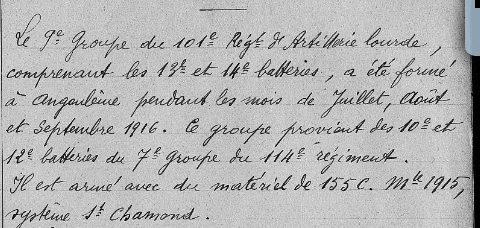 Le 9e Groupe du 101e Régt d'Artillerie lourde,
comprenant les 13e et 14e batteries, a été formé
à Angoulême pendant les mois de Juillet, Août
et Septembre 1916. Ce groupe provient des 10e et
12e batteries du 7e Groupe du 114e régiment.
Il est armé avec du matériel de 155 C. Mle 1915,
système St Chamond.